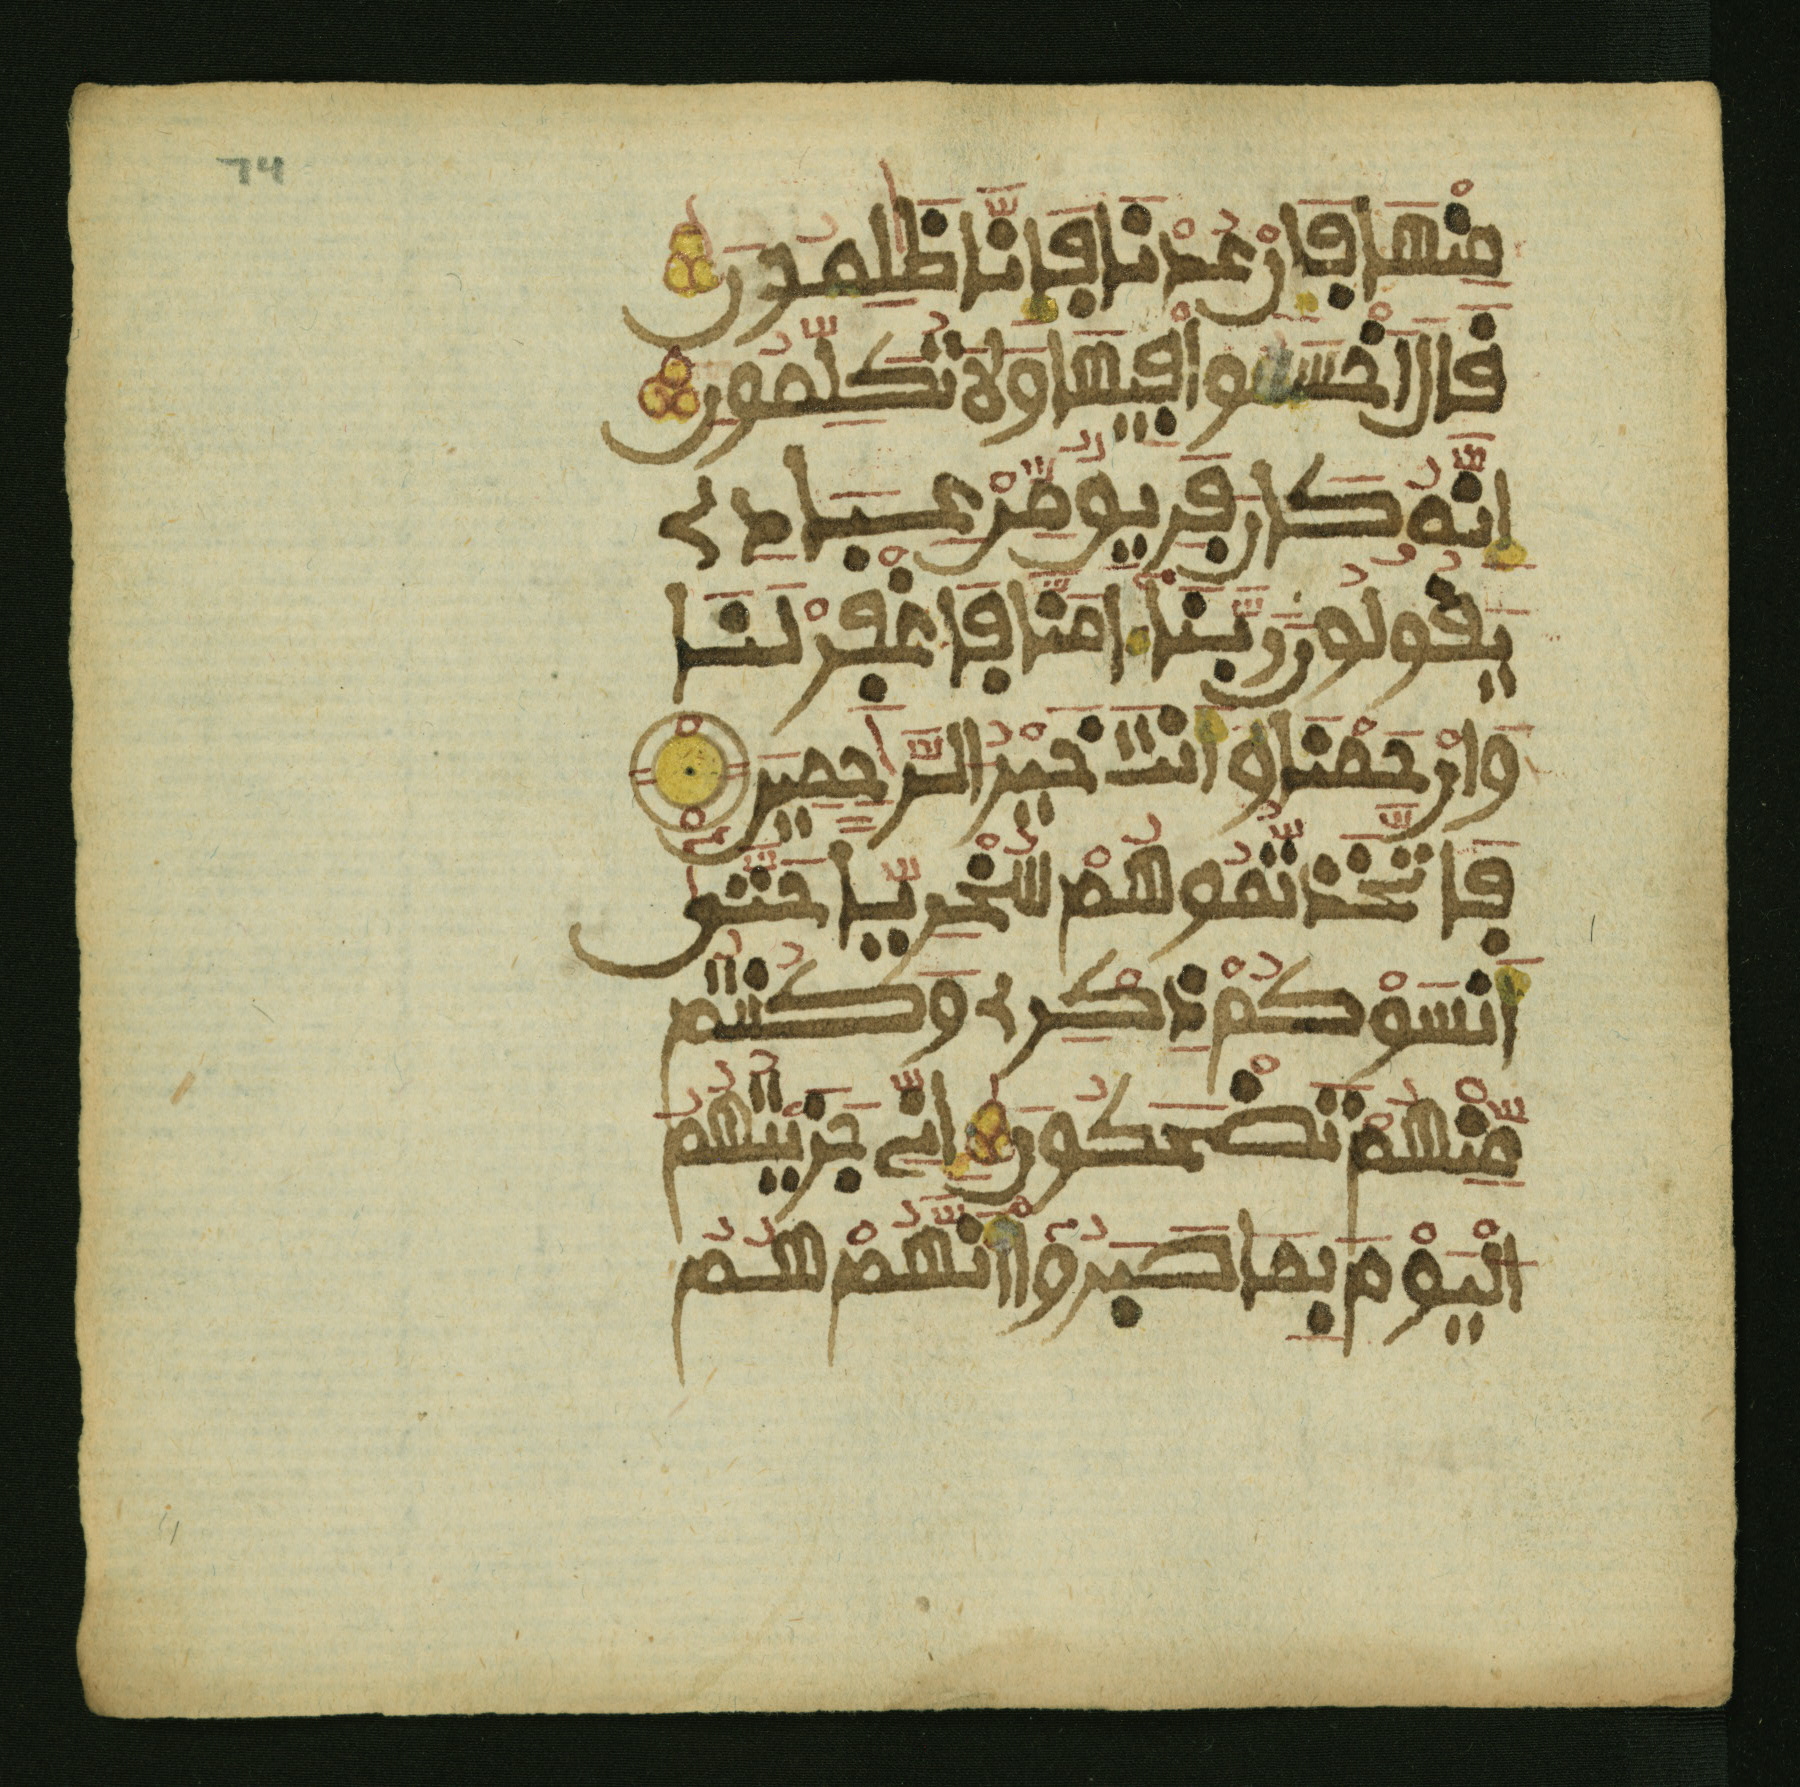 74
مِنْهَا فَإِنْ عُدْنَا فَإِنَّا ظَٰلِمُونَ
قَالَ اخْسَـُٔوا فِيهَا وَلَا تُكَلِّمُونِ
إِنَّهُ كَانَ فَرِيقٌ مِّنْ عِبَادِي
يَقُولُونَ رَبَّنَا ءَامَنَّا فَاغْفِرْ لَنَا
وَارْحَمْنَا وَأَنتَ خَيْرُ الرَّٰحِمِينَ
فَاتَّخَذتُّمُوهُمْ سُخْرِيّاً حَتَّىٰ
أَنسَوْكُمْ ذِكْرِي وَكُنتُم
مِّنْهُمْ تَضْحَكُونَ إِنِّي جَزَيْتُهُمُ
الْيَوْمَ بِمَا صَبَرُوا أَنَّهُمْ هُمُ